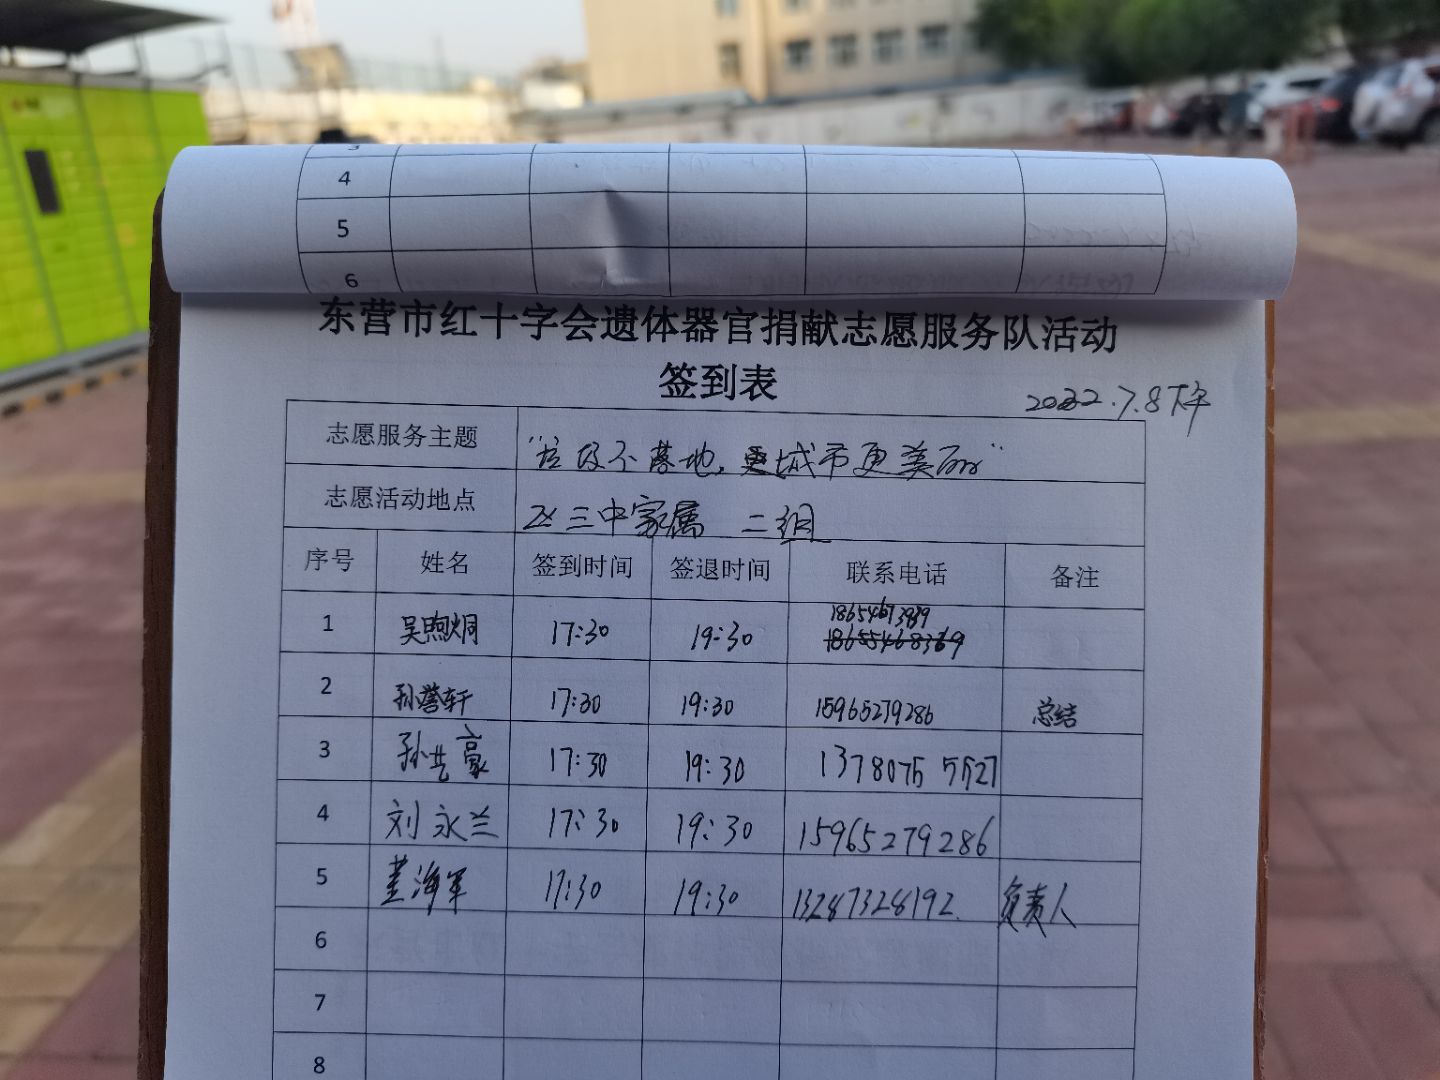 4
5
6
东营市红十字会遗体器官捐献志愿服务队活动
签到表
2022.7.8下午
志愿服务主题 "垃圾不落地，城市更美丽"
志愿活动地点 三中家属 二组
序号 姓名 签到时间 签退时间 联系电话 备注
1 吴煦炯 17:30 19:30 18654673989
2 孙誉轩 17:30 19:30 15965279286 总结
3 孙艺豪 17:30 19:30 13780755527
4 刘永兰 17:30 19:30 15965279286
5 董海军 17:30 19:30 13287328192 负责人
6
7
8